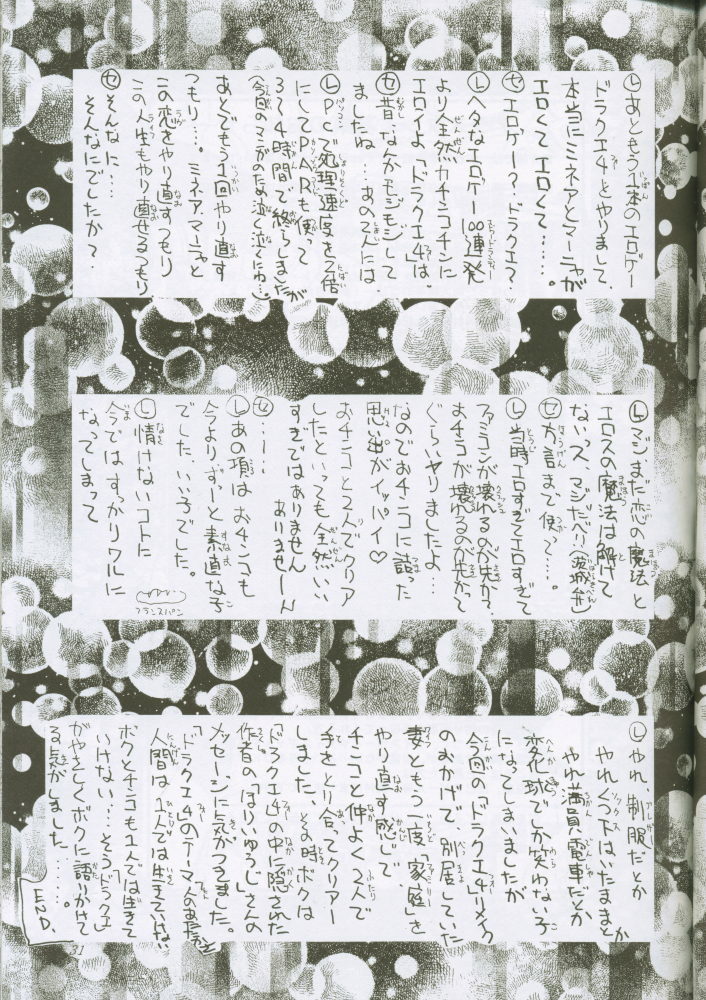 Ⓛあともう1本のエロゲー
ドラクエ4とやりまして、
本当にミネアとマーニャが
エロくてエロくて……。
セエロゲー?ドラクエ?
Ⓛヘタなエロゲー100連発
より全然カチンコチンに
エロイよ「ドラクエ4」は。
セ昔、なんかモジモジして
ましたね…あの2人には、
ⓁPCで処理速度を2倍
にしてPARも使って
3〜4時間で終らしましたが
あとでもう1回やり直す
つもり…。ミネア、マーニャと
この恋をやり直すつもり
この人生もやり直せるつもり
セそんなに…
そんなにでしたか?
Ⓛマジまだ恋の魔法と
エロスの魔法は解けて
ないっス、マジだべり(茨城弁)
セ方言まで使って…。
Ⓛ当時エロすぎてエロすぎて
ファミコンが壊れるのが先か?
おチコが壊れるのが先かって
ぐらいヤりましたよ…
なのでおチンコに誤った
思い出がイッパイ♡
おチンコと2人でクリア
したといっても全然いい
すぎではありません
ありませーん
セ…!…
Ⓛあの頃はおチンコも
今よりずーと素直な子
でした。いい子でした。
Ⓛ情けないコトに
今ではすっかりワルに
なってしまって
フランスパン
Ⓛやれ、制服だとか
やれくつ下はいたままとか
やれ満員電車だとか
変化球でしか笑わない子
になってしまいましたが
今回の「ドラクエ4」リメイク
のおかげで、別居していた
妻ともう一度「家庭」を
やり直す感じで、
チンコと仲よく2人で
手をとり合ってクリアー
しました、その時ボクは
「ドラクエ4」の中に隠された
作者の「ほりいゆうじ」さんの
メッセージに気がつきました。
人間は1人では生きていけない
ボクとチンコも1人では生きて
いけない…そう「ドラクエ」
がやさしくボクに語りかけて
る気がしました……。
END.
31